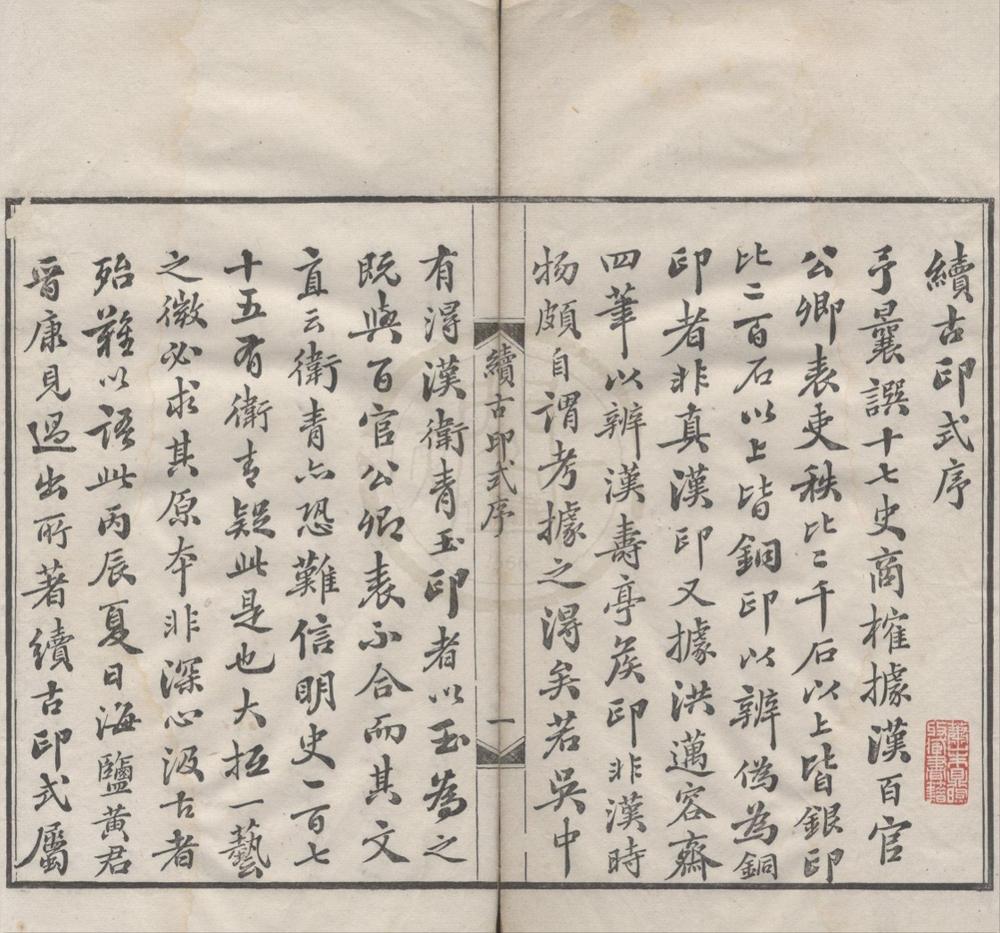 續古印式序
予曩譔十七史商榷據漢百官
公卿表吏秩比二千石以上皆銀印
比二百石以上皆銅印以辨偽為銅
印者非真漢印又據洪邁容齋
四筆以辨漢壽亭矦印非漢時
物頗自謂考據之淂矣若吳中
續古印式序
一
有淂漢衛青玉印者以玉為之
既與百官公卿表不合而其文
直云衛青亦恐難信明史一百七
十五有衛青疑此是也大抵一藝
之微必求其原本非深心汲古者
殆難以語此丙辰夏日海鹽黃君
晉康見過出所著續古印式屬